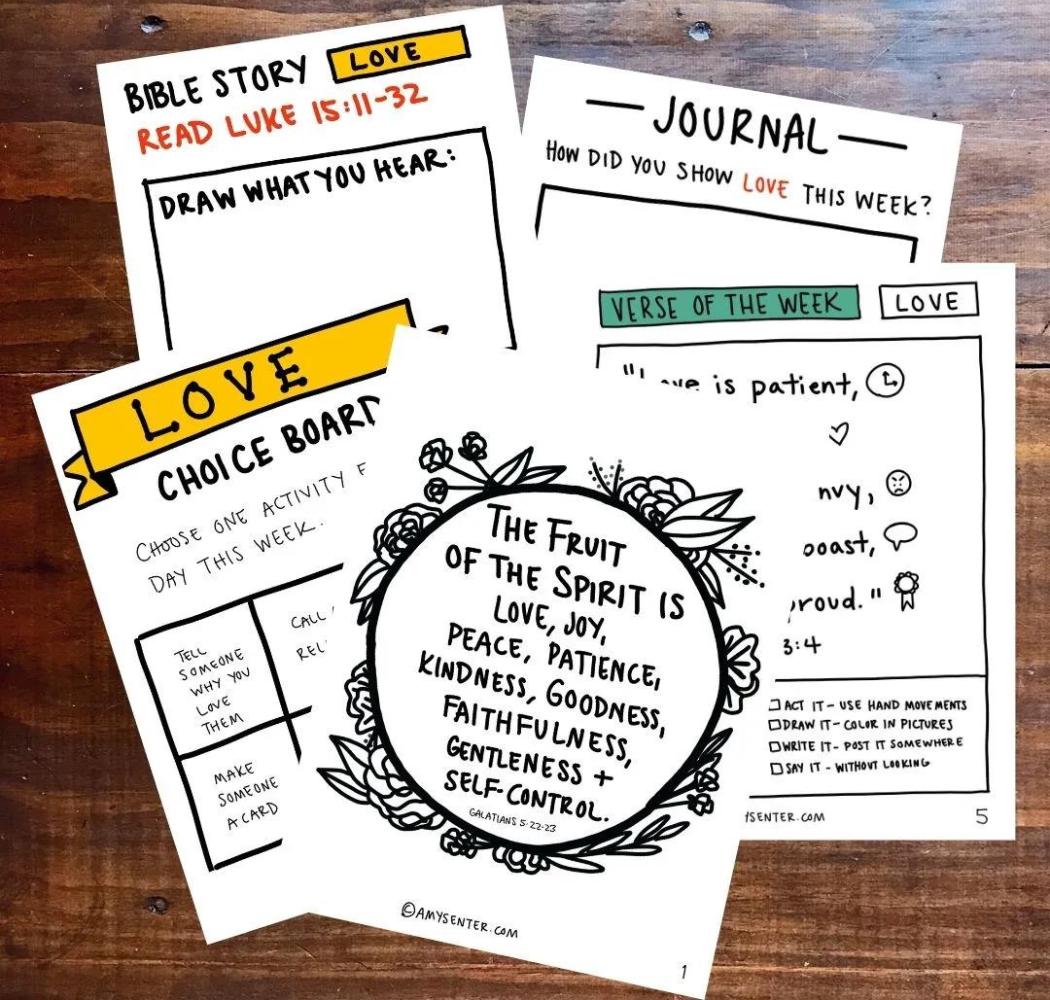 BIBLE STORY LOVE
READ LUKE 15:11-32
DRAW WHAT YOU HEAR:
JOURNAL
HOW DID YOU SHOW LOVE THIS WEEK?
VERSE OF THE WEEK LOVE
"Love is patient,
nvy,
oast,
roud."
3:4
ACT IT - USE HAND MOVEMENTS
DRAW IT - COLOR IN PICTURES
WRITE IT - POST IT SOMEWHERE
SAY IT - WITHOUT LOOKING
YSENTER.COM
5
LOVE
CHOICE BOARD
CHOOSE ONE ACTIVITY F
DAY THIS WEEK.
TELL
SOMEONE
WHY YOU
LOVE
THEM
CALL
REL
MAKE
SOMEONE
A CARD
THE FRUIT
OF THE SPIRIT IS
LOVE, JOY,
PEACE, PATIENCE,
KINDNESS, GOODNESS,
FAITHFULNESS,
GENTLENESS +
SELF-CONTROL.
GALATIANS 5:22-23
©AMYSENTER.COM
1